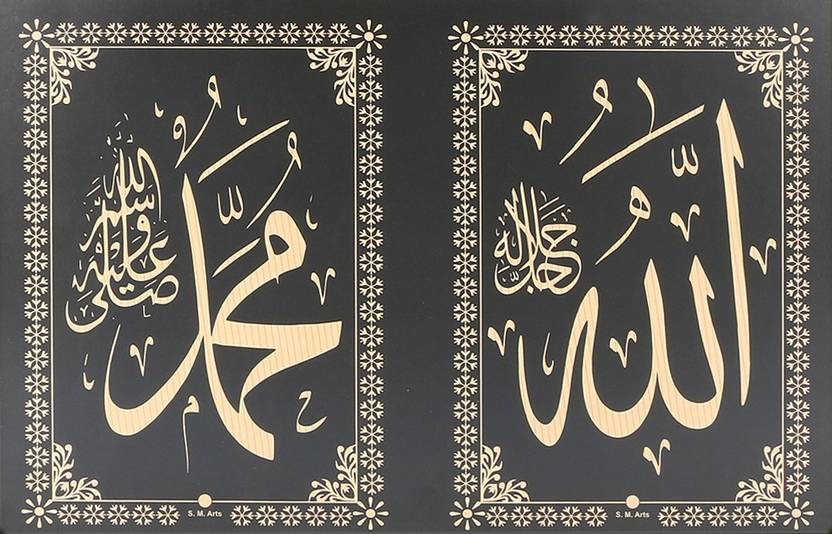 الله
جل جلاله
S. M. Arts
محمد
صلى الله عليه وسلم
S. M. Arts